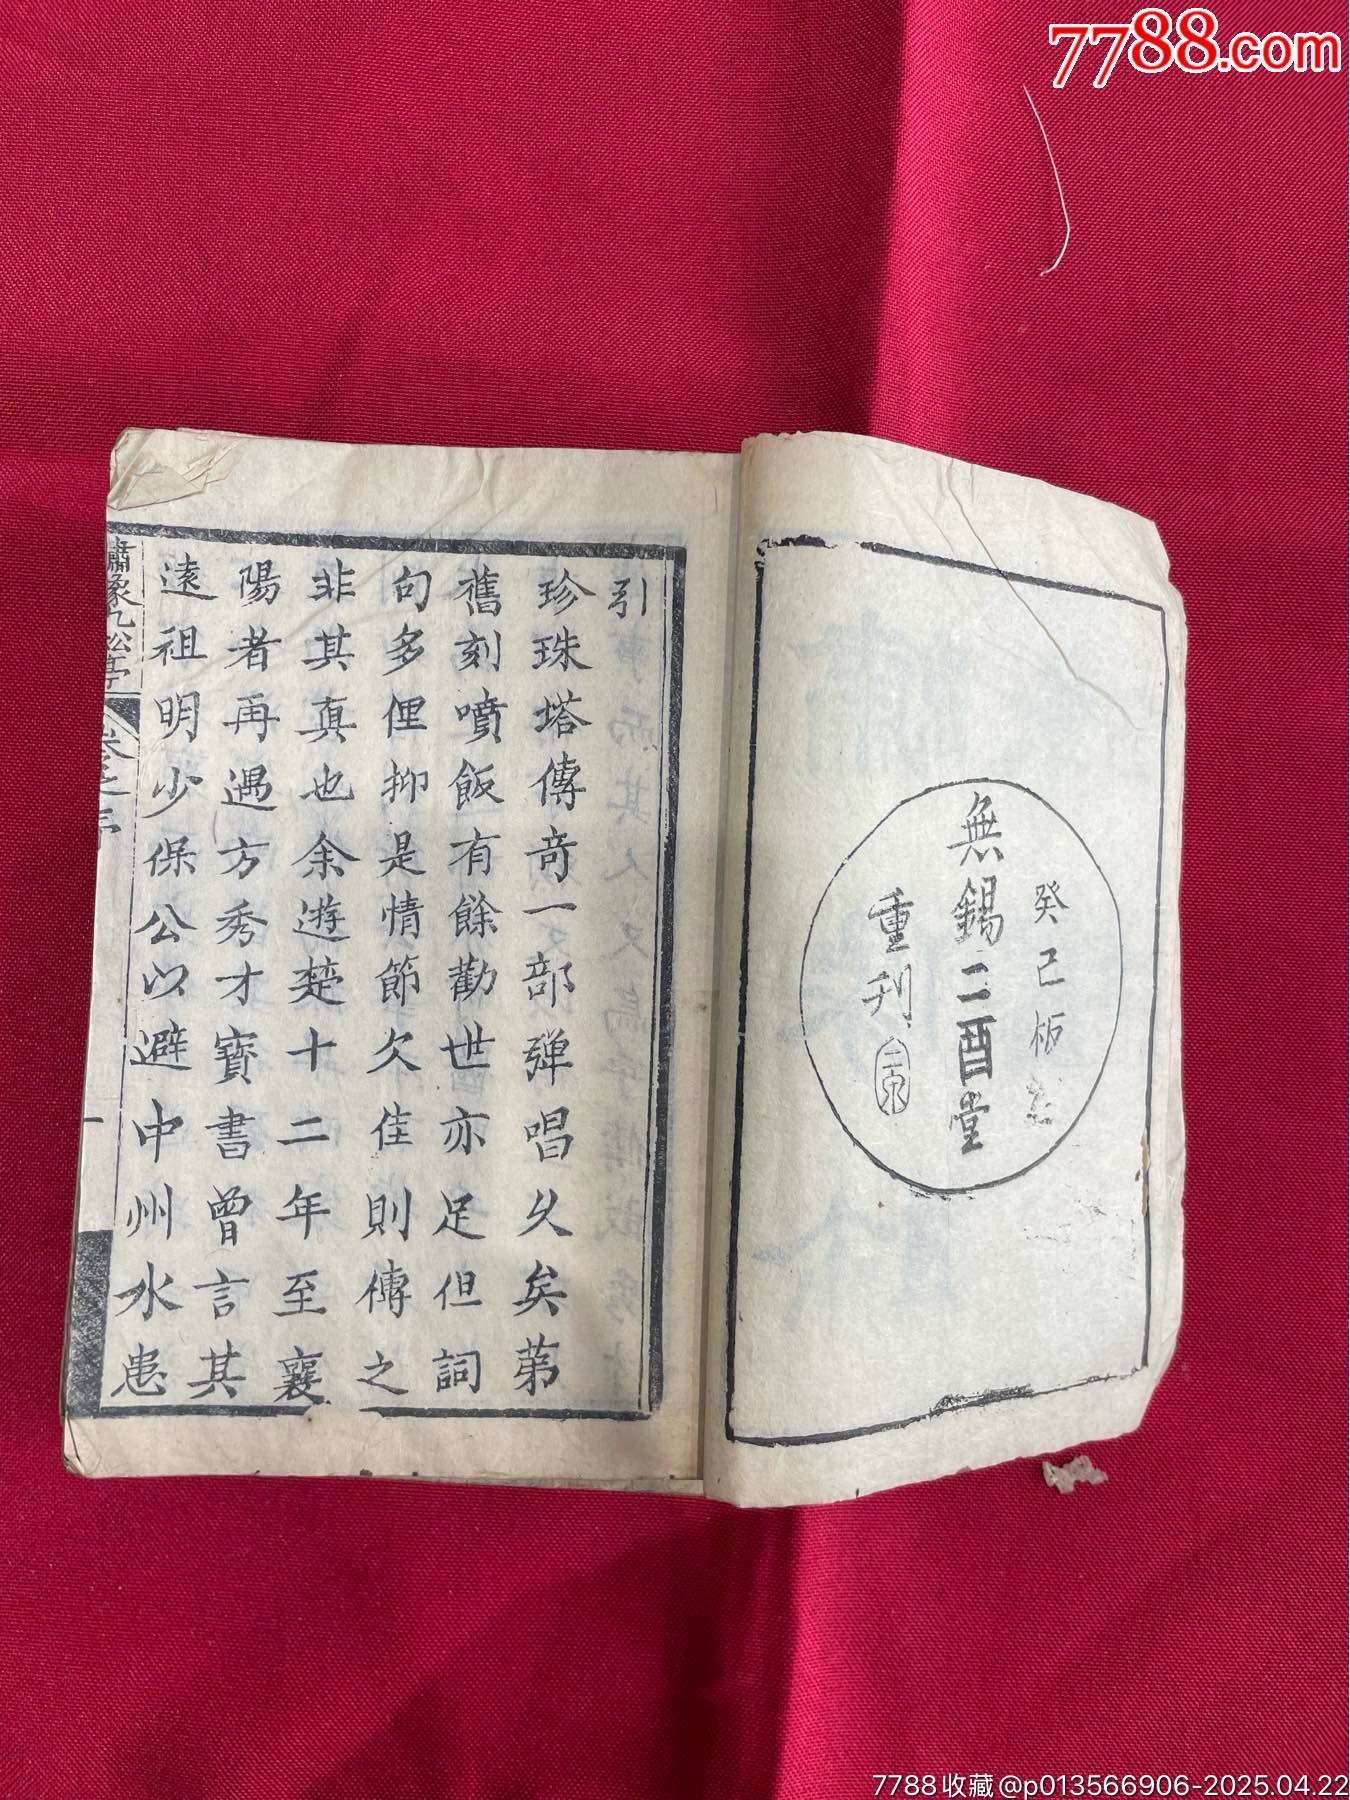 7788.com
癸巳板
無錫二酉堂
重刊
引
珍珠塔傳奇一部彈唱久矣苐
舊刻噴飯有餘勸世亦足但詞
句多俚抑是情節欠佳則傳之
非其真也余遊楚十二年至襄
陽者再遇方秀才寶書曾言其
遠祖明少保公以避中州水患
繡像九松亭
卷之
一
7788收藏@p013566906-2025.04.22